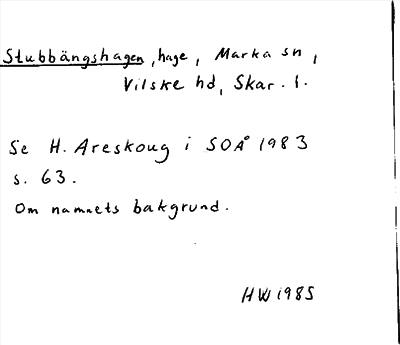 Stubbängshagen, hage, Marka sn,
Vilske hd, Skar. l.
Se H. Areskoug i SOÅ 1983
s. 63.
Om namnets bakgrund.
HW 1985